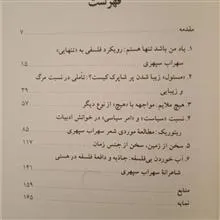 فهرست
مقدمه ۷
۱. یاد من باشد تنها هستم: رویکرد فلسفی به «تنهایی»
سهراب سپهری ۱۵
۲. «مسئول» زیبا شدن پر شاپرک کیست؟: تأملی در نسبت مرگ
و زیبایی ۳۹
۳. هیچ ملایم. مواجهه با «هیچ» از نوع دیگر ۵۷
۴. نسبت «سیاست» و «امر سیاسی» در خوانش ادبیات ۸۵
۵. ریتوریک: مطالعهٔ موردی شعر سهراب سپهری ۱۱۷
سخن از زمین، سخن از جنس زمان
۶. آب خوردن بی‌فلسفه: جاذبه و دافعهٔ فلسفه در هستی
شاعرانهٔ سهراب سپهری ۱۴۱
منابع ۱۵۹
نمایه ۱۷۵